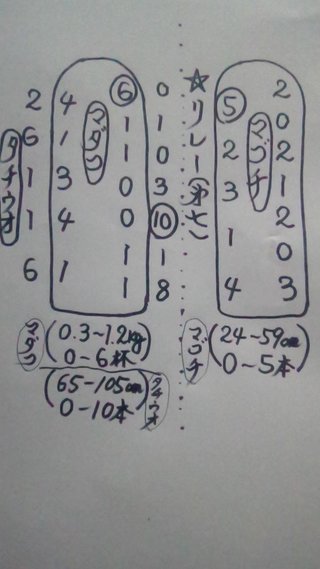 2 4 6 0
6 1 1 1
1 0
1 3 0 3
1 4 0 ⑩
1 1
6 1 1 8
タチウオ
マダコ
☆リレー
5 2
0
2 2
3 1
1 2
0
4 3
マゴチ
マダコ (0.3~1.2kg
0~6杯)
(65-105cm
0-10本) タチウオ
マゴチ (24-59cm
0~5本)